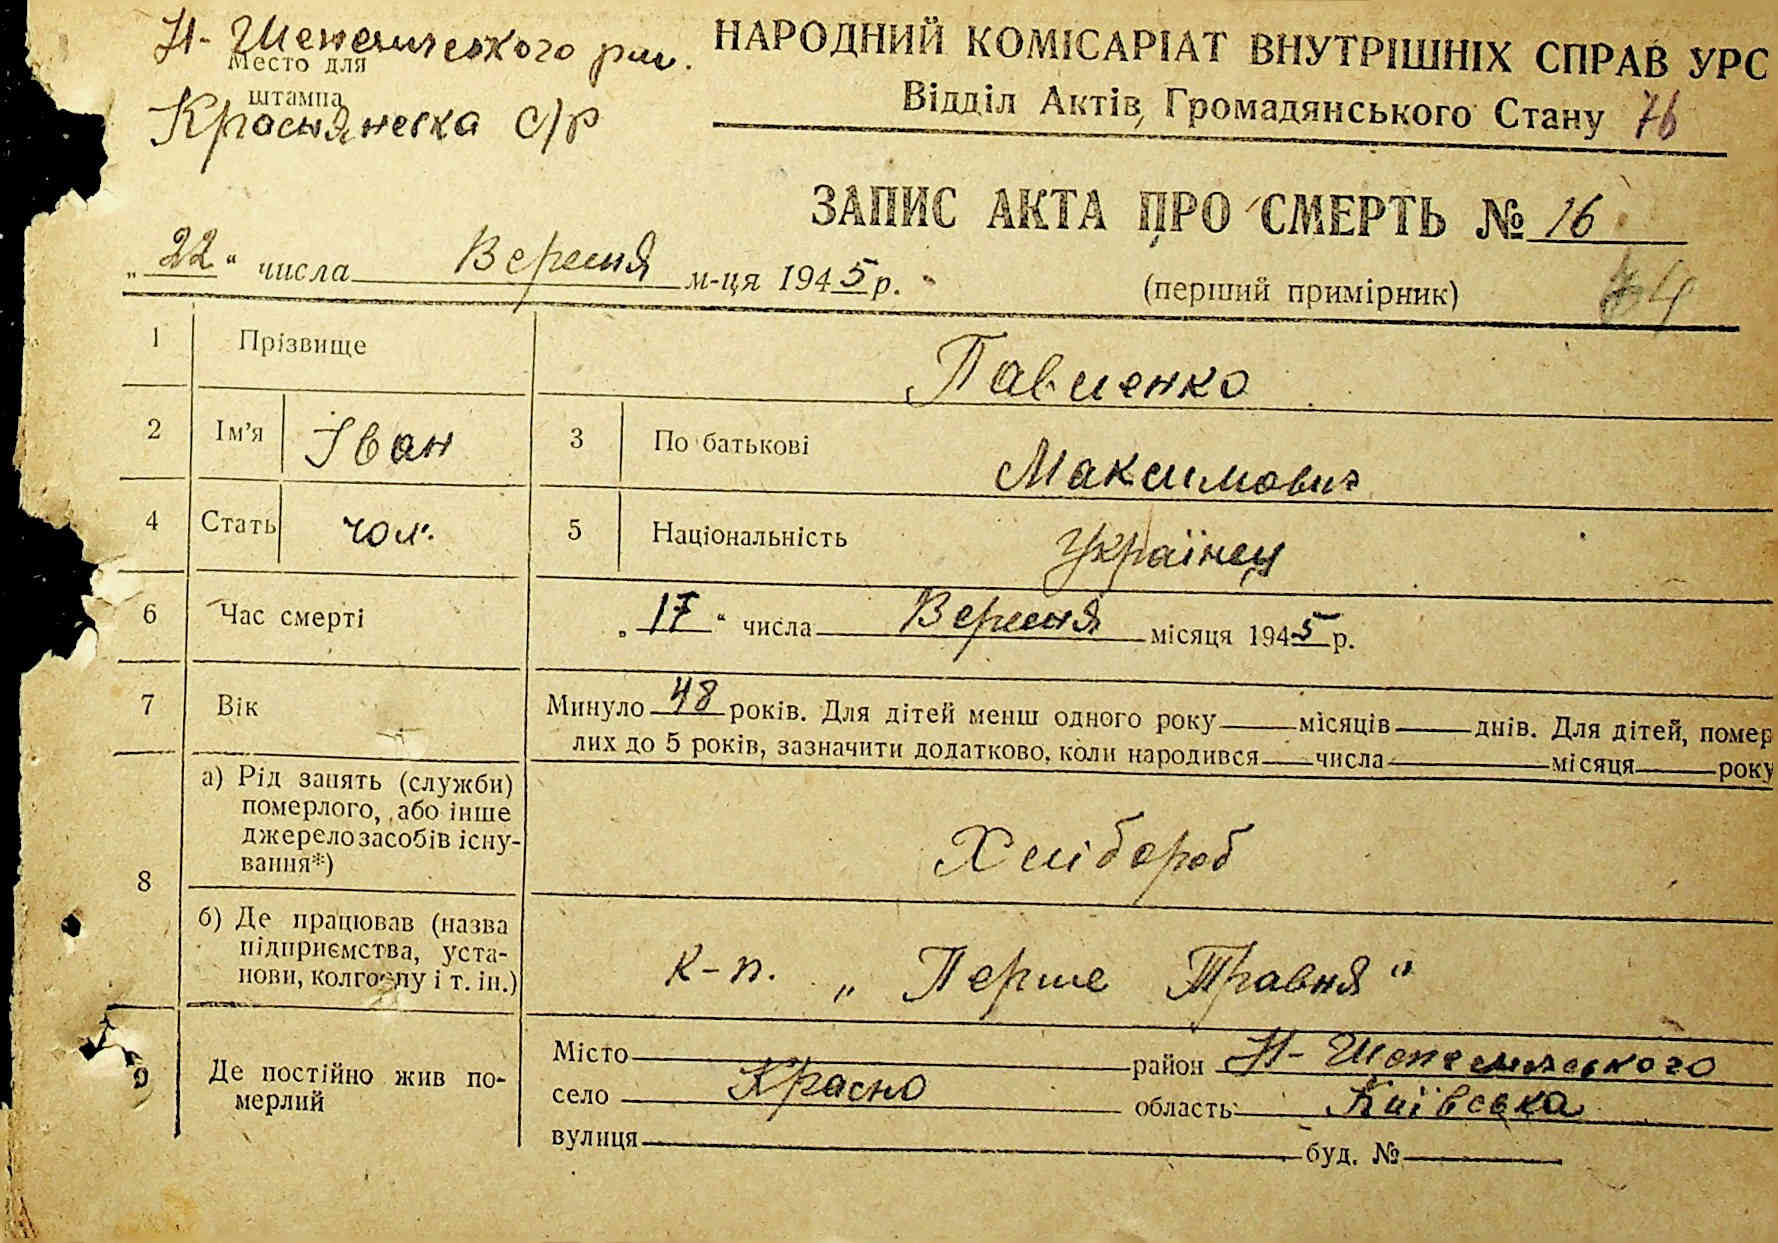 Н- Шепелического р-на.
Место для
штампа
Краснянска с/р
НАРОДНИЙ КОМІСАРІАТ ВНУТРІШНІХ СПРАВ УРС
Відділ Актів Громадянського Стану 76
ЗАПИС АКТА ПРО СМЕРТЬ № 16
„22“ числа Вересня м-ця 1945 р.
(перший примірник)
1 Прізвище Павленко
2 Ім'я Іван 3 По батькові Максимович
4 Стать чол. 5 Національність Українец
6 Час смерті „17“ числа Вересня місяця 1945 р.
7 Вік Минуло 48 років. Для дітей менш одного року місяців днів. Для дітей, помер
лих до 5 років, зазначити додатково, коли народився числа місяця року
8 а) Рід занять (служби)
померлого, або інше
джерело засобів існу-
вання*)
Хлібороб
б) Де працював (назва
підприємства, уста-
нови, колгоспу і т. ін.)
к-п. „Перше Травня"
9 Де постійно жив по-
мерлий
Місто район Н- Шепелического
село Красно область Київська
вулиця буд. №